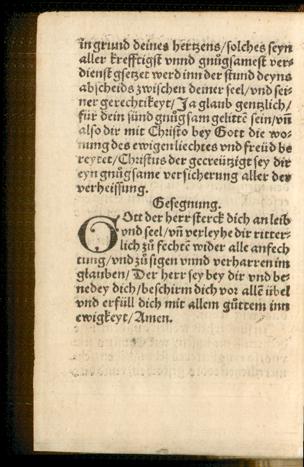 in grund deines hertzens/solches seyn
aller krefftigst vnnd gnůgsamest ver-
dienst gsetzet werd inn der stund deyns
abscheids zwischen deiner seel/vnd sei-
ner gerechtikeyt/Ja glaub gentzlich/
für dein sünd gnůgsam gelittẽ sein/vñ
also dir mit Christo bey Gott die wo-
nung des ewigen liechtes vnd freüd be
reytet/Christus der gecreützigt sey dir
eyn gnůgsame versicherung aller der
verheissung.
Gesegnung.
GOtt der herr sterck dich an leib
vnd seel/vñ verleyhe dir ritter-
lich zů fechtẽ wider alle anfech
tung/vnd zů sigen vnnd verharren im
glauben/Der herr sey bey dir vnd be-
nedey dich/beschirm dich vor allẽ übel
vnd erfüll dich mit allem gůttem inn
ewigkeyt/Amen.